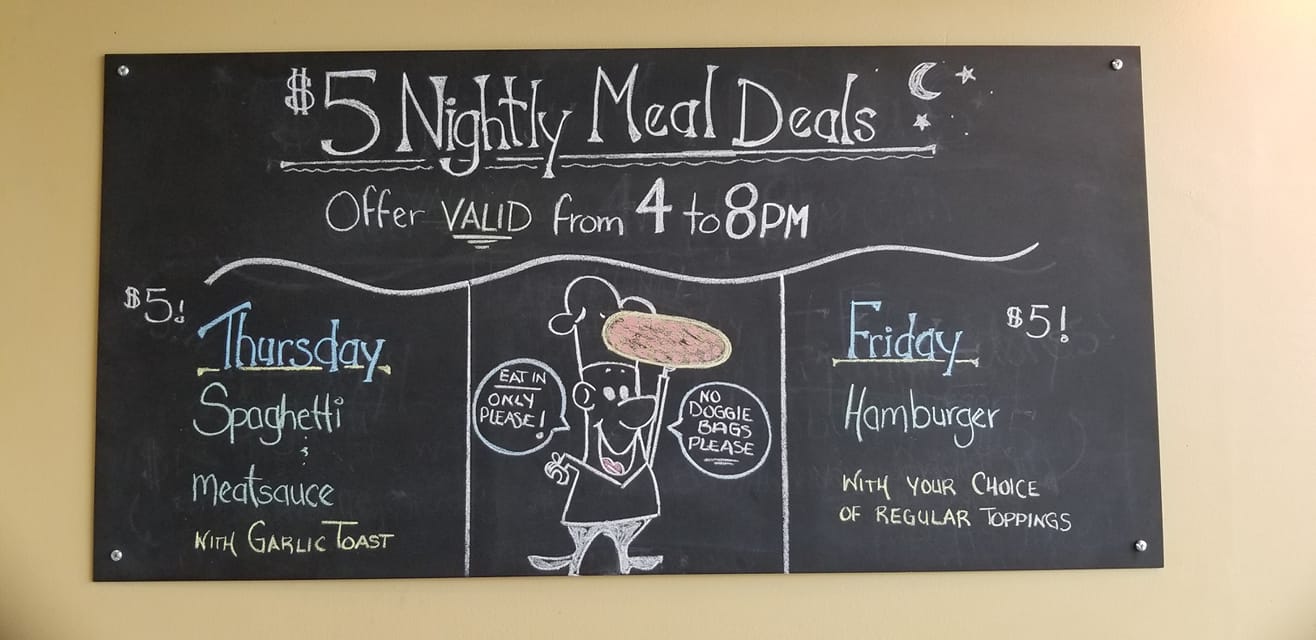 $5 Nightly Meal Deals
Offer VALID from 4 to 8PM
$5!
Thursday
Spaghetti
&
meatsauce
WITH GARLIC TOAST
EAT IN
ONLY
PLEASE!
NO
DOGGIE
BAGS
PLEASE
Friday
$5!
Hamburger
WITH YOUR CHOICE
OF REGULAR TOPPINGS